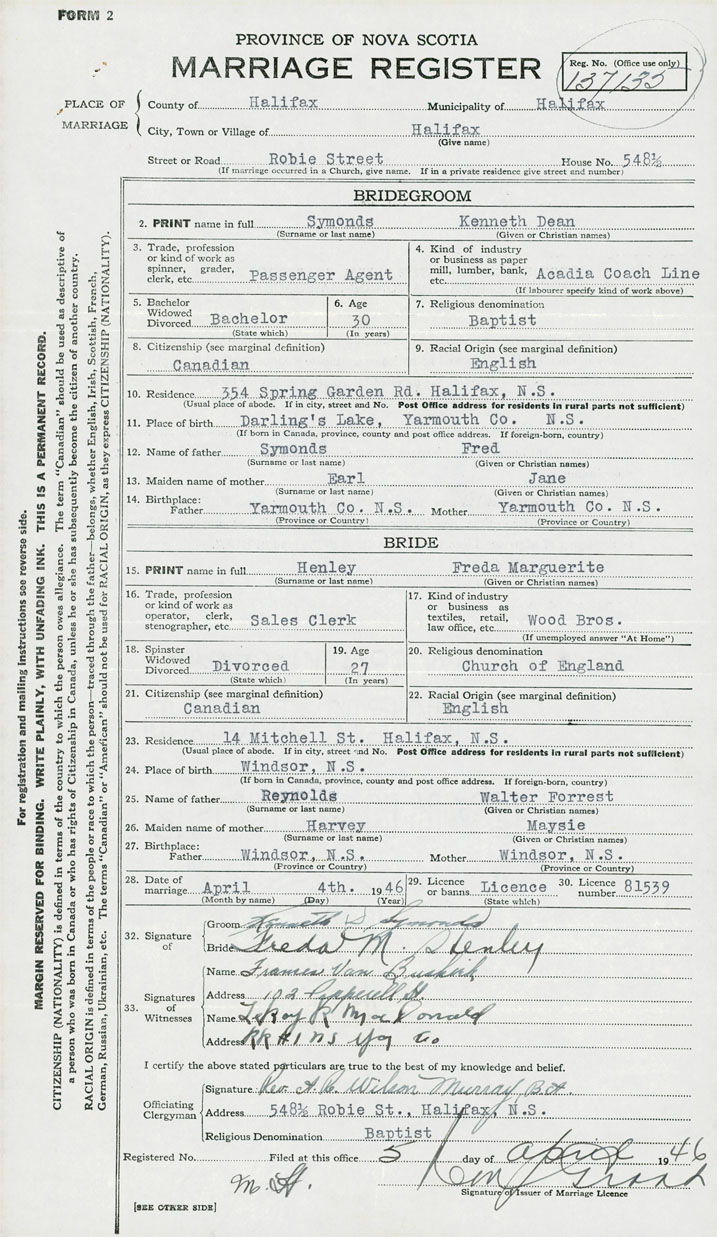 FORM 2
PROVINCE OF NOVA SCOTIA
MARRIAGE REGISTER
Reg. No. (Office use only)
137135
PLACE OF MARRIAGE
County of Halifax Municipality of Halifax
City, Town or Village of Halifax
(Give name)
Street or Road Robie Street House No. 548½
(If marriage occurred in a Church, give name. If in a private residence give street and number)
BRIDEGROOM
2. PRINT name in full Symonds Kenneth Dean
(Surname or last name) (Given or Christian names)
3. Trade, profession or kind of work as spinner, grader, clerk, etc. Passenger Agent
4. Kind of industry or business as paper mill, lumber, bank, etc. Acadia Coach Line
(If labourer specify kind of work above)
5. Bachelor Widowed Divorced Bachelor
(State which)
6. Age 30
(In years)
7. Religious denomination
Baptist
8. Citizenship (see marginal definition)
Canadian
9. Racial Origin (see marginal definition)
English
10. Residence 354 Spring Garden Rd. Halifax, N.S.
(Usual place of abode. If in city, street and No. Post Office address for residents in rural parts not sufficient)
11. Place of birth Darling's Lake, Yarmouth Co. N.S.
(If born in Canada, province, county and post office address. If foreign-born, country)
12. Name of father Symonds Fred
(Surname or last name) (Given or Christian names)
13. Maiden name of mother Earl Jane
(Surname or last name) (Given or Christian names)
14. Birthplace:
Father Yarmouth Co. N.S. Mother Yarmouth Co. N.S.
(Province or Country) (Province or Country)
BRIDE
15. PRINT name in full Henley Freda Marguerite
(Surname or last name) (Given or Christian names)
16. Trade, profession or kind of work as operator, clerk, stenographer, etc. Sales Clerk
17. Kind of industry or business as textiles, retail, law office, etc. Wood Bros.
(If unemployed answer "At Home")
18. Spinster Widowed Divorced Divorced
(State which)
19. Age 27
(In years)
20. Religious denomination
Church of England
21. Citizenship (see marginal definition)
Canadian
22. Racial Origin (see marginal definition)
English
23. Residence 14 Mitchell St. Halifax, N.S.
(Usual place of abode. If in city, street and No. Post Office address for residents in rural parts not sufficient)
24. Place of birth Windsor, N.S.
(If born in Canada, province, county and post office address. If foreign-born, country)
25. Name of father Reynolds Walter Forrest
(Surname or last name) (Given or Christian names)
26. Maiden name of mother Harvey Maysie
(Surname or last name) (Given or Christian names)
27. Birthplace:
Father Windsor, N.S. Mother Windsor, N.S.
(Province or Country) (Province or Country)
28. Date of marriage April 4th. 1946
(Month by name) (Day) (Year)
29. Licence or banns Licence
(State which)
30. Licence number 81539
32. Signature of
Groom Kenneth D Symonds
Bride Freda M. Henley
33. Signatures of Witnesses
Name Frances Van Buskirk
Address 102 Pepperell St.
Name LeRoy R MacDonald
Address RR #1 NS Co
I certify the above stated particulars are true to the best of my knowledge and belief.
Officiating Clergyman
Signature Rev. A. Wilson Murray B.A.
Address 548½ Robie St., Halifax, N.S.
Religious Denomination Baptist
Registered No. Filed at this office 5 day of April 1946
M. H.
Signature of Issuer of Marriage Licence
[SEE OTHER SIDE]
For registration and mailing instructions see reverse side.
MARGIN RESERVED FOR BINDING. WRITE PLAINLY, WITH UNFADING INK. THIS IS A PERMANENT RECORD.
CITIZENSHIP (NATIONALITY) is defined in terms of the country to which the person owes allegiance. The term "Canadian" should be used as descriptive of
a person who was born in Canada or who has rights of Citizenship in Canada, unless he or she has subsequently become the citizen of another country.
RACIAL ORIGIN is defined in terms of the people or race to which the person—traced through the father—belongs, whether English, Irish, Scottish, French,
German, Russian, Ukrainian, etc. The terms "Canadian" or "American" should not be used for RACIAL ORIGIN, as they express CITIZENSHIP (NATIONALITY).